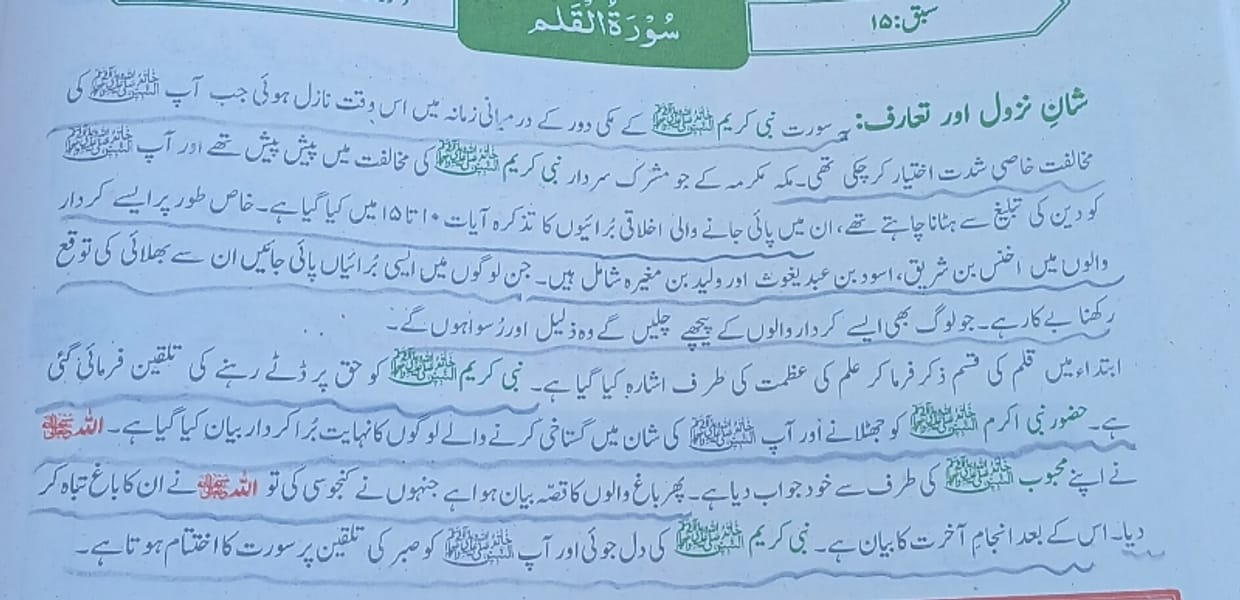 سبق:۱۵
سُوْرَةُ الْقَلَم
شانِ نزول اور تعارف: یہ سورت نبی کریم خَاتَمُ النَّبِیّٖنَ ﷺ کے مکی دور کے درمیانی زمانہ میں اس وقت نازل ہوئی جب آپ خَاتَمُ النَّبِیّٖنَ ﷺ کی
مخالفت خاصی شدت اختیار کر چکی تھی۔ مکہ مکرمہ کے جو مشرک سردار نبی کریم خَاتَمُ النَّبِیّٖنَ ﷺ کی مخالفت میں پیش پیش تھے اور آپ خَاتَمُ النَّبِیّٖنَ ﷺ
کو دین کی تبلیغ سے ہٹانا چاہتے تھے، ان میں پائی جانے والی اخلاقی بُرائیوں کا تذکرہ آیات ۱۰ تا ۱۵ میں کیا گیا ہے۔ خاص طور پر ایسے کردار
والوں میں اخنس بن شریق، اسود بن عبد یغوث اور ولید بن مغیرہ شامل ہیں۔ جن لوگوں میں ایسی بُرائیاں پائی جائیں ان سے بھلائی کی توقع
رکھنا بے کار ہے۔ جو لوگ بھی ایسے کردار والوں کے پیچھے چلیں گے وہ ذلیل اور رُسوا ہوں گے۔
ابتداء میں قلم کی قسم ذکر فرما کر علم کی عظمت کی طرف اشارہ کیا گیا ہے۔ نبی کریم خَاتَمُ النَّبِیّٖنَ ﷺ کو حق پر ڈٹے رہنے کی تلقین فرمائی گئی
ہے۔ حضور نبی اکرم خَاتَمُ النَّبِیّٖنَ ﷺ کو جھٹلانے اور آپ خَاتَمُ النَّبِیّٖنَ ﷺ کی شان میں گستاخی کرنے والے لوگوں کا نہایت بُرا کردار بیان کیا گیا ہے۔ اللہ ﷻ
نے اپنے محبوب خَاتَمُ النَّبِیّٖنَ ﷺ کی طرف سے خود جواب دیا ہے۔ پھر باغ والوں کا قصّہ بیان ہوا ہے جنہوں نے کنجوسی کی تو اللہ ﷻ نے ان کا باغ تباہ کر
دیا۔ اس کے بعد انجامِ آخرت کا بیان ہے۔ نبی کریم خَاتَمُ النَّبِیّٖنَ ﷺ کی دل جوئی اور آپ خَاتَمُ النَّبِیّٖنَ ﷺ کو صبر کی تلقین پر سورت کا اختتام ہوتا ہے۔